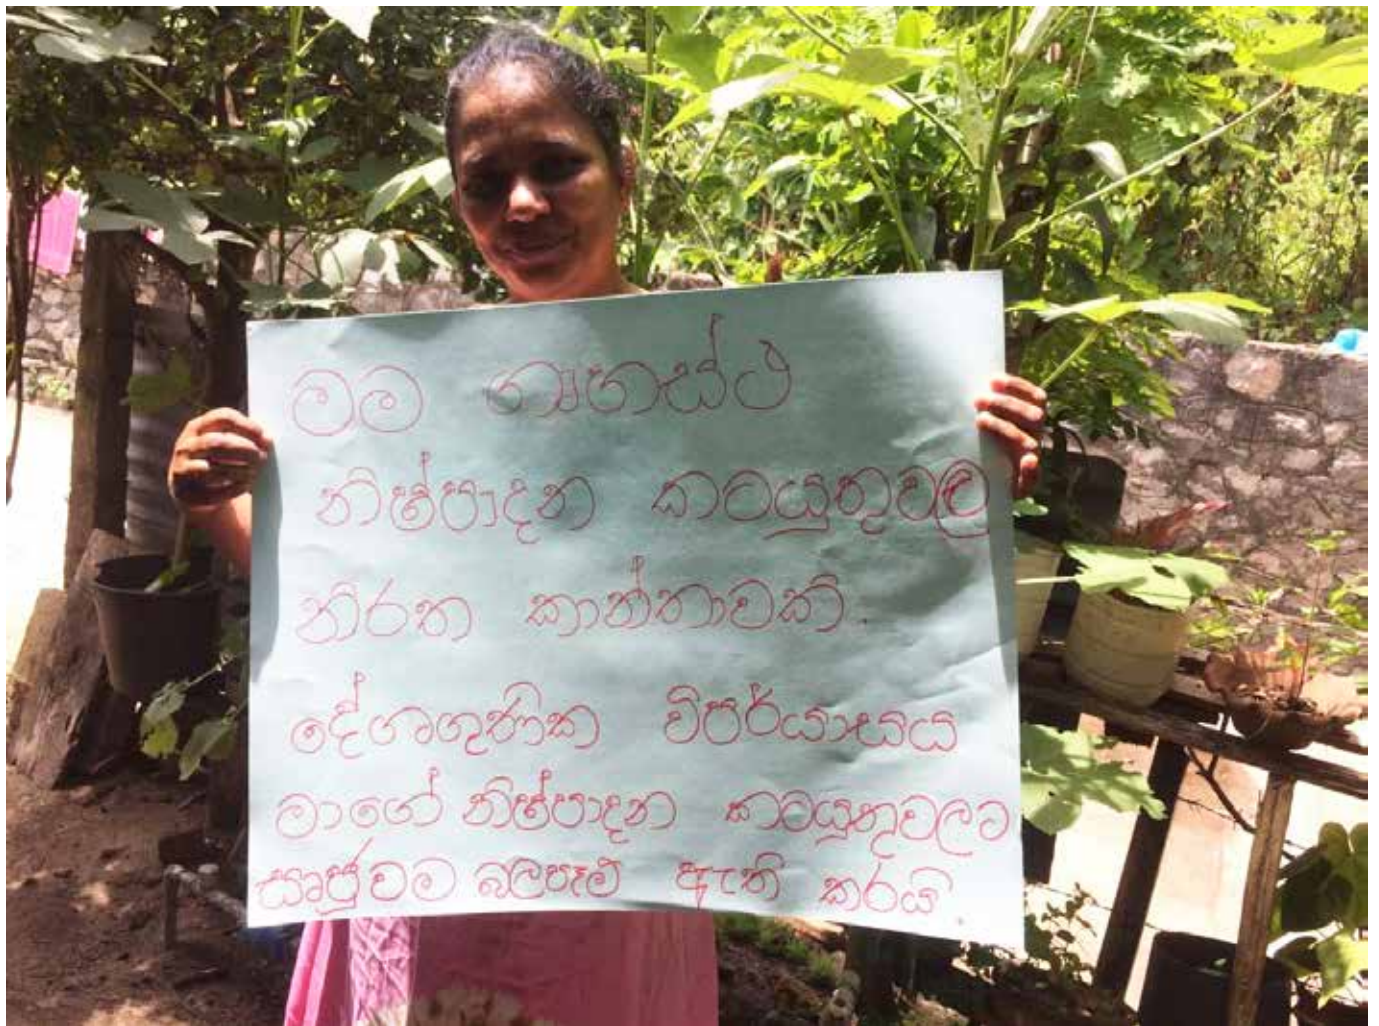 මම ගෘහස්ථ
නිෂ්පාදන කටයුතුවල
නිරත කාන්තාවකි.
දේශගුණික විපර්යාසය
මාගේ නිෂ්පාදන කටයුතුවලට
සෘජුවම බලපෑම් ඇති කරයි.